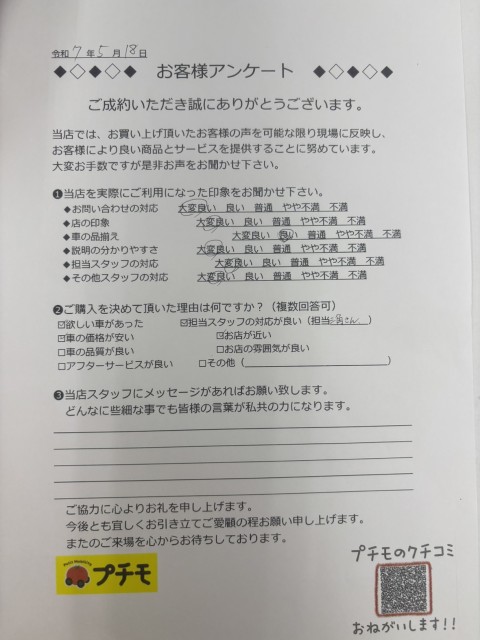 令和 7 年 5 月 18 日
◆◇◆◇◆ お客様アンケート ◆◇◆◇◆
ご成約いただき誠にありがとうございます。
当店では、お買い上げ頂いたお客様の声を可能な限り現場に反映し、
お客様により良い商品とサービスを提供することに努めています。
大変お手数ですが是非お声をお聞かせ下さい。
❶当店を実際にご利用になった印象をお聞かせ下さい。
◆お問い合わせの対応 大変良い 良い 普通 やや不満 不満
◆店の印象 大変良い 良い 普通 やや不満 不満
◆車の品揃え 大変良い 良い 普通 やや不満 不満
◆説明の分かりやすさ 大変良い 良い 普通 やや不満 不満
◆担当スタッフの対応 大変良い 良い 普通 やや不満 不満
◆その他スタッフの対応 大変良い 良い 普通 やや不満 不満
❷ご購入を決めて頂いた理由は何ですか？（複数回答可）
☑欲しい車があった ☑担当スタッフの対応が良い（担当 さん）
☑車の価格が安い ☑お店が近い
□車の品質が良い □お店の雰囲気が良い
□アフターサービスが良い □その他（ ）
❸当店スタッフにメッセージがあればお願い致します。
どんなに些細な事でも皆様の言葉が私共の力になります。
ご協力に心よりお礼を申し上げます。
今後とも宜しくお引き立てご愛顧の程お願い申し上げます。
またのご来場を心からお待ちしております。
プチモ
プチモのクチコミ
おねがいします!!